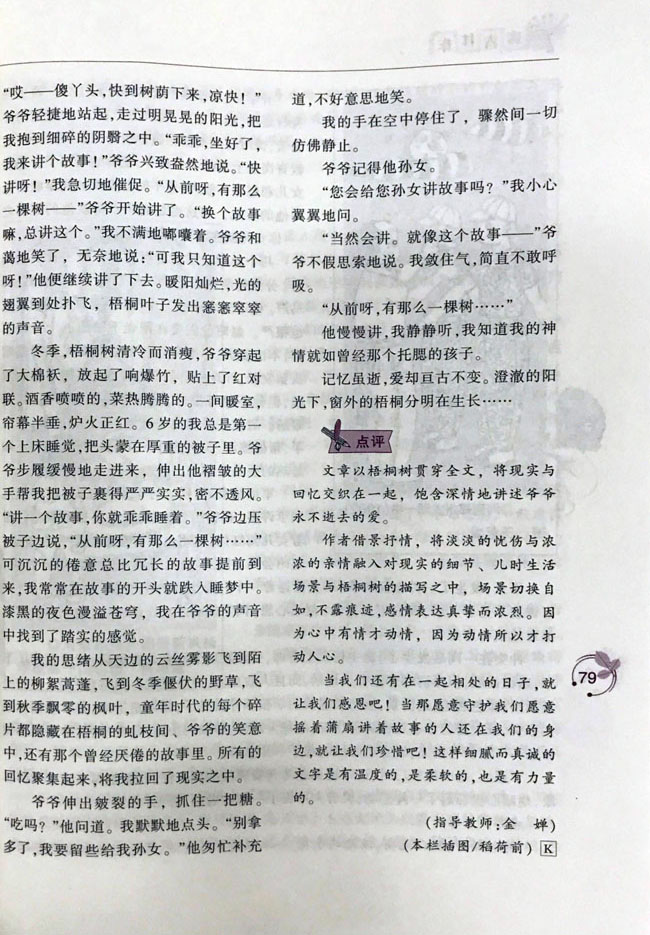 “哎——傻丫头,快到树荫下来,凉快！”
爷爷轻捷地站起,走过明晃晃的阳光,把
我抱到细碎的阴翳之中。“乖乖,坐好了,
我来讲个故事！”爷爷兴致盎然地说。“快
讲呀！”我急切地催促。“从前呀,有那么
一棵树——”爷爷开始讲了。“换个故事
嘛,总讲这个。”我不满地嘟囔着。爷爷和
蔼地笑了，无奈地说:“可我只知道这个
呀！”他便继续讲了下去。暖阳灿烂,光的
翅翼到处扑飞，梧桐叶子发出窸窸窣窣
的声音。
冬季,梧桐树清冷而消瘦,爷爷穿起
了大棉袄，放起了响爆竹，贴上了红对
联。酒香喷喷的,菜热腾腾的。一间暖室,
帘幕半垂,炉火正红。6 岁的我总是第一
个上床睡觉,把头蒙在厚重的被子里。爷
爷步履缓慢地走进来，伸出他褶皱的大
手帮我把被子裹得严严实实,密不透风。
“讲一个故事,你就乖乖睡着。”爷爷边压
被子边说,“从前呀,有那么一棵树……”
可沉沉的倦意总比冗长的故事提前到
来,我常常在故事的开头就跌入睡梦中。
漆黑的夜色漫溢苍穹，我在爷爷的声音
中找到了踏实的感觉。
我的思绪从天边的云丝雾影飞到陌
上的柳絮蒿蓬,飞到冬季偃伏的野草,飞
到秋季飘零的枫叶，童年时代的每个碎
片都隐藏在梧桐的虬枝间、爷爷的笑意
中,还有那个曾经厌倦的故事里。所有的
回忆聚集起来,将我拉回了现实之中。
爷爷伸出皴裂的手，抓住一把糖。
“吃吗？”他问道。我默默地点头。“别拿
多了,我要留些给我孙女。”他匆忙补充
道,不好意思地笑。
我的手在空中停住了，骤然间一切
仿佛静止。
爷爷记得他孙女。
“您会给您孙女讲故事吗？”我小心
翼翼地问。
“当然会讲。就像这个故事——”爷
爷不假思索地说。我敛住气,简直不敢呼
吸。
“从前呀,有那么一棵树……”
他慢慢讲,我静静听,我知道我的神
情就如曾经那个托腮的孩子。
记忆虽逝,爱却亘古不变。澄澈的阳
光下,窗外的梧桐分明在生长……
点评
文章以梧桐树贯穿全文，将现实与
回忆交织在一起，饱含深情地讲述爷爷
永不逝去的爱。
作者借景抒情，将淡淡的忧伤与浓
浓的亲情融入对现实的细节、儿时生活
场景与梧桐树的描写之中，场景切换自
如,不露痕迹,感情表达真挚而浓烈。因
为心中有情才动情，因为动情所以才打
动人心。
当我们还有在一起相处的日子,就
让我们感恩吧！当那愿意守护我们愿意
摇着蒲扇讲着故事的人还在我们的身
边,就让我们珍惜吧！这样细腻而真诚的
文字是有温度的,是柔软的,也是有力量
的。
(指导教师:金　婵)
(本栏插图/稻荷前) K
79